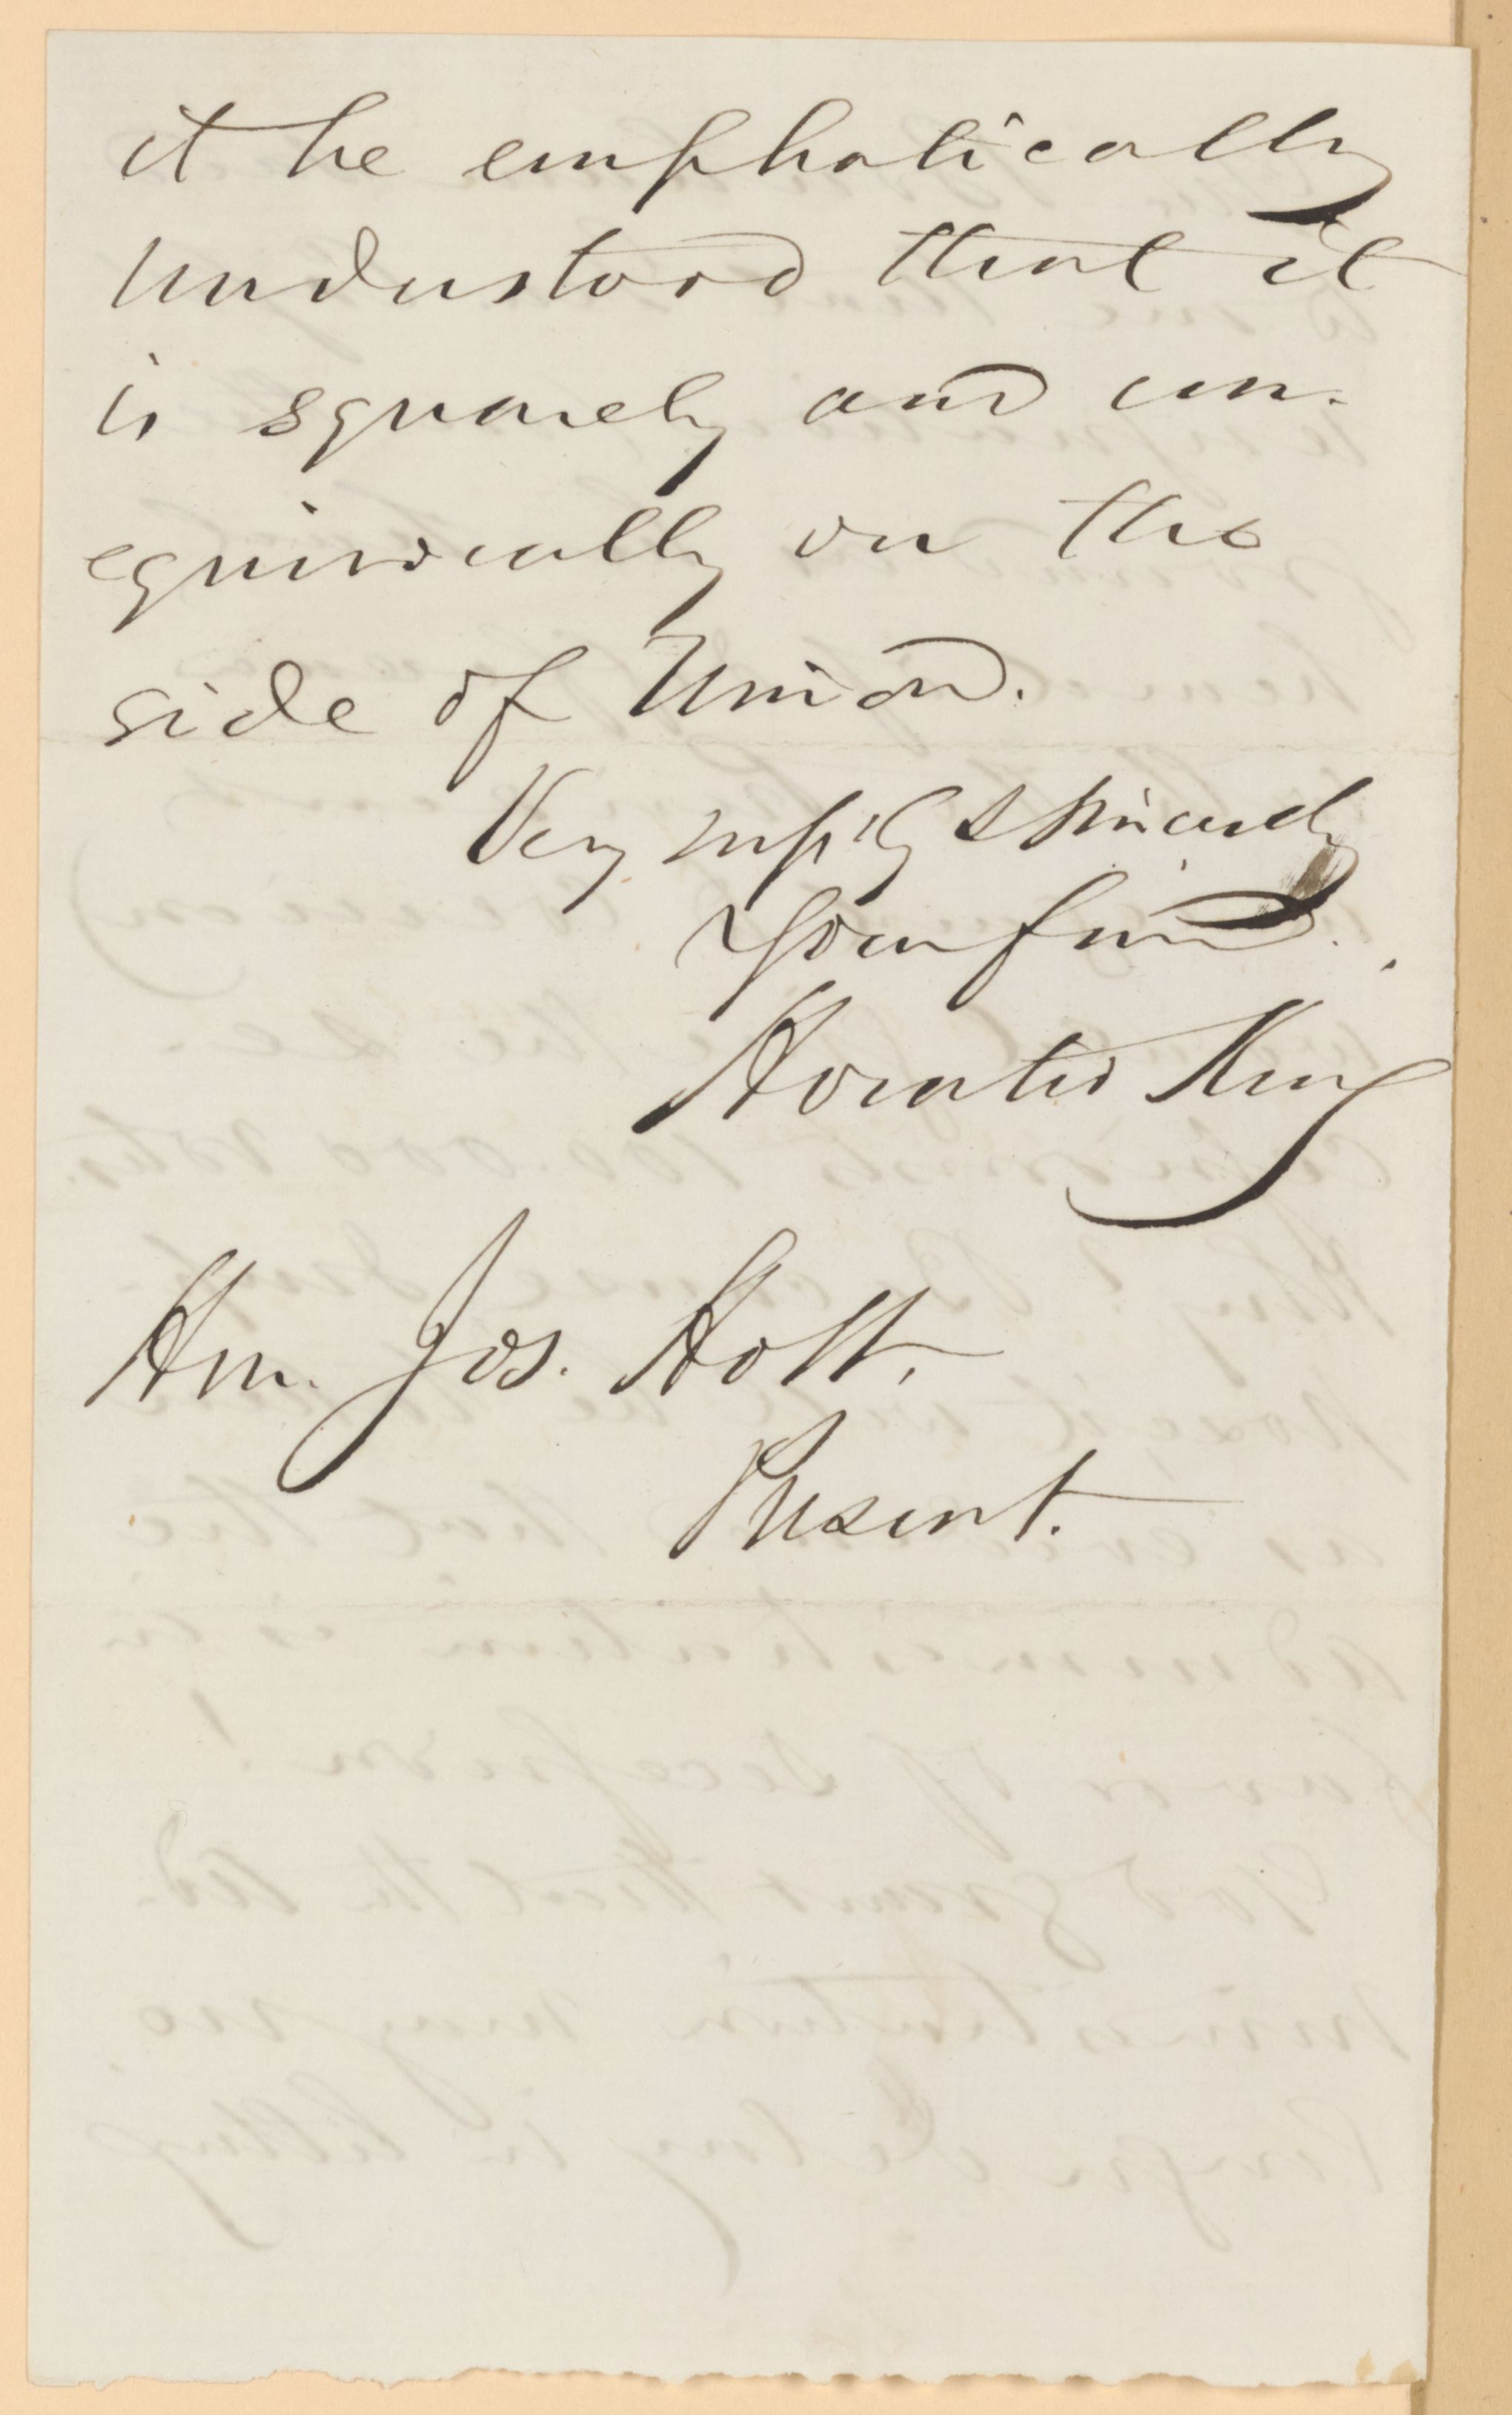 it be emphatically
understood that it
is squarely and un-
equivocally on the
side of Union.
Very resp'ly & sincerely
Your friend.
Horatio King
Hon. Jos. Holt.
Present.